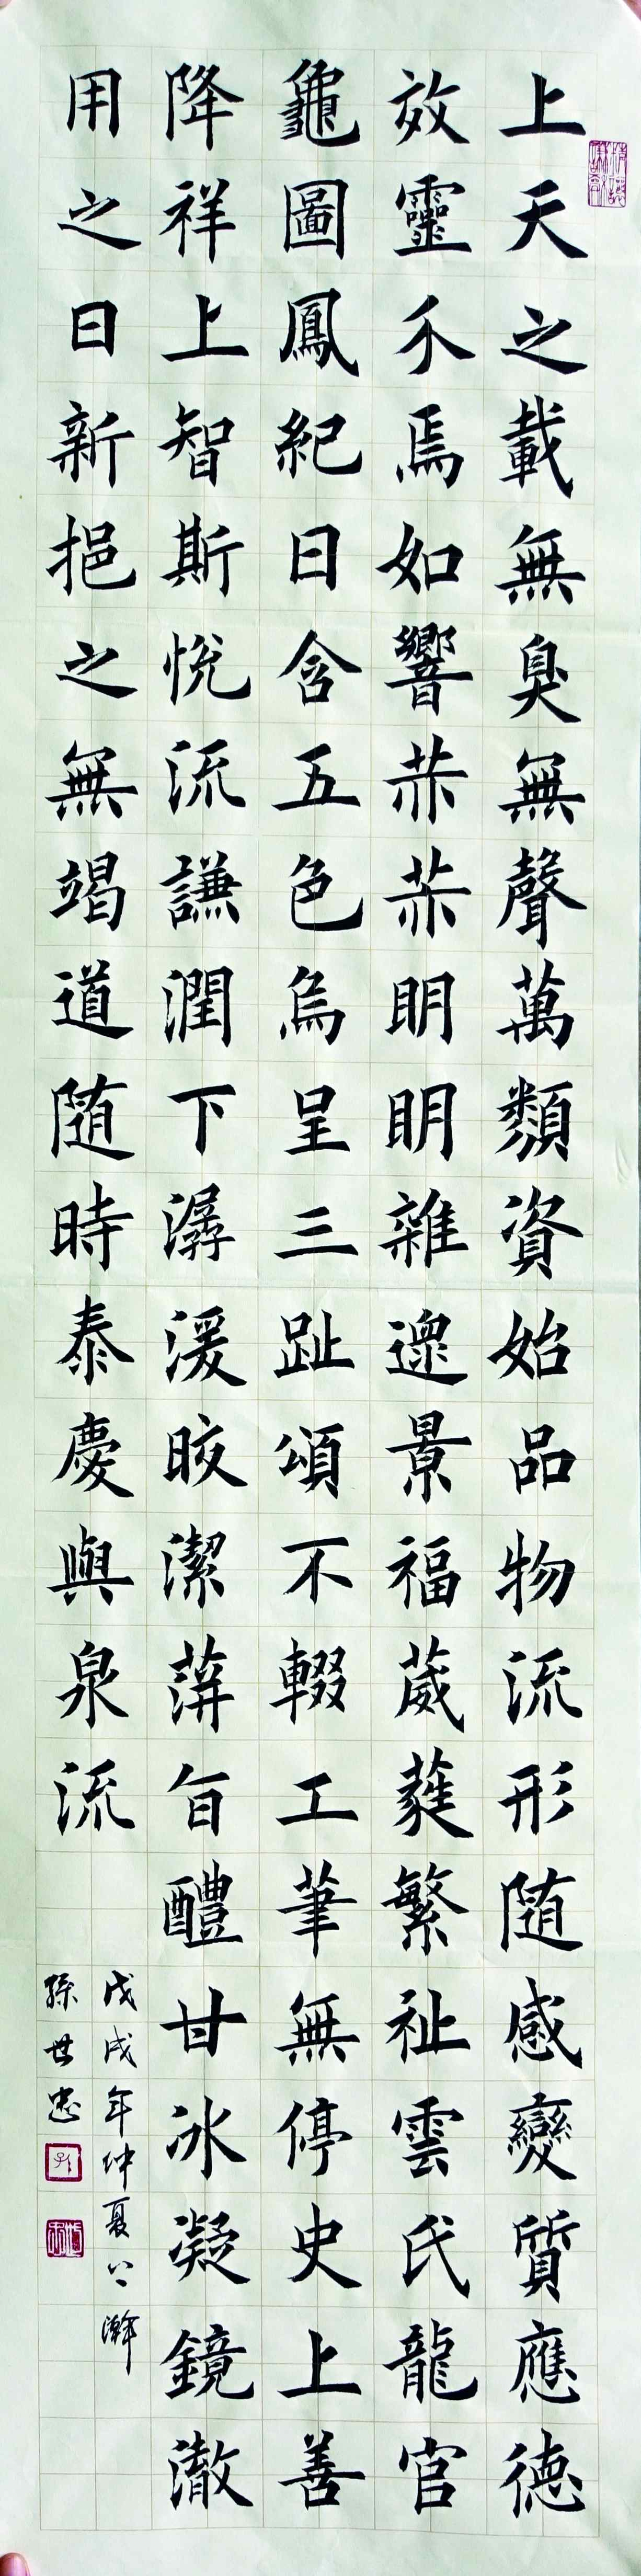 上天之載無臭無聲萬類資始品物流形随感變質應德
效靈介焉如響赫赫明明雜遝景福葳蕤繁祉雲氏龍官
龜圖鳳紀日含五色烏呈三趾頌不輟工筆無停史上善
降祥上智斯悅流謙潤下潺湲皎潔蓱旨醴甘冰凝鏡澈
用之日新挹之無竭道随時泰慶與泉流
戊戌年仲夏上澣
孫世忠